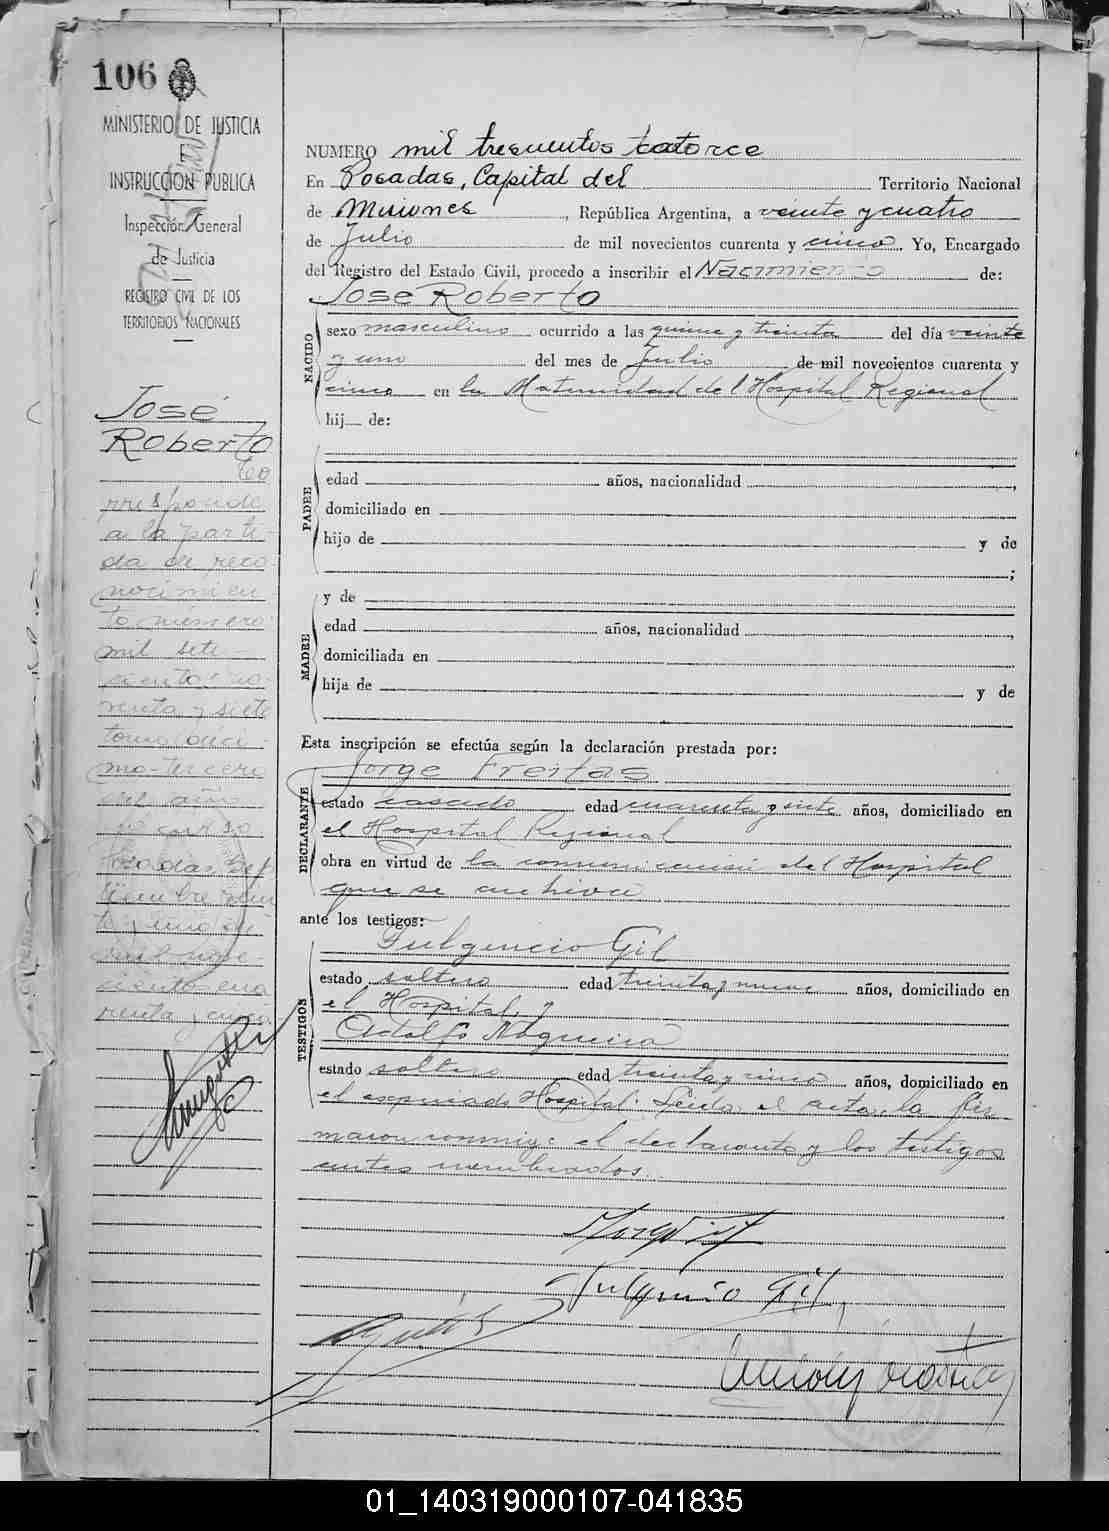 106
MINISTERIO DE JUSTICIA
E
INSTRUCCION PUBLICA
Inspección General
de Justicia
REGISTRO CIVIL DE LOS
TERRITORIOS NACIONALES
José
Roberto
Co
rresponde
a la parti
da de reco
nocimien
to número
mil sete-
cientos no-
venta y siete
tomo deci-
mo-tercero
del año
en curso
Posadas Sep
tiembre vein
te y uno de
mil nove-
cientos cua
renta y cinco
NUMERO mil trescientos catorce
En Posadas, Capital del Territorio Nacional
de Misiones, República Argentina, a veinte y cuatro
de Julio de mil novecientos cuarenta y cinco. Yo, Encargado
del Registro del Estado Civil, procedo a inscribir el Nacimiento de:
José Roberto
NACIDO
sexo masculino ocurrido a las quince y treinta del día veinte
y uno del mes de Julio de mil novecientos cuarenta y
cinco en la Maternidad del Hospital Regional
hij de:
PADRE
edad años, nacionalidad ,
domiciliado en
hijo de y de
;
MADRE
y de
edad años, nacionalidad ,
domiciliada en
hija de y de
Esta inscripción se efectúa según la declaración prestada por:
Jorge Freitas
DECLARANTE
estado casado edad cuarenta y siete años, domiciliado en
el Hospital Regional
obra en virtud de la comunicación del Hospital
que se archiva
ante los testigos:
Fulgencio Gil
TESTIGOS
estado soltero edad treinta y nueve años, domiciliado en
el Hospital, y
Adolfo Nogueira
estado soltero edad treinta y cinco años, domiciliado en
el expresado Hospital. Leída el acta, la fir
maron conmigo el declarante y los testigos
antes nombrados.
Fulgencio Gil
01_140319000107-041835